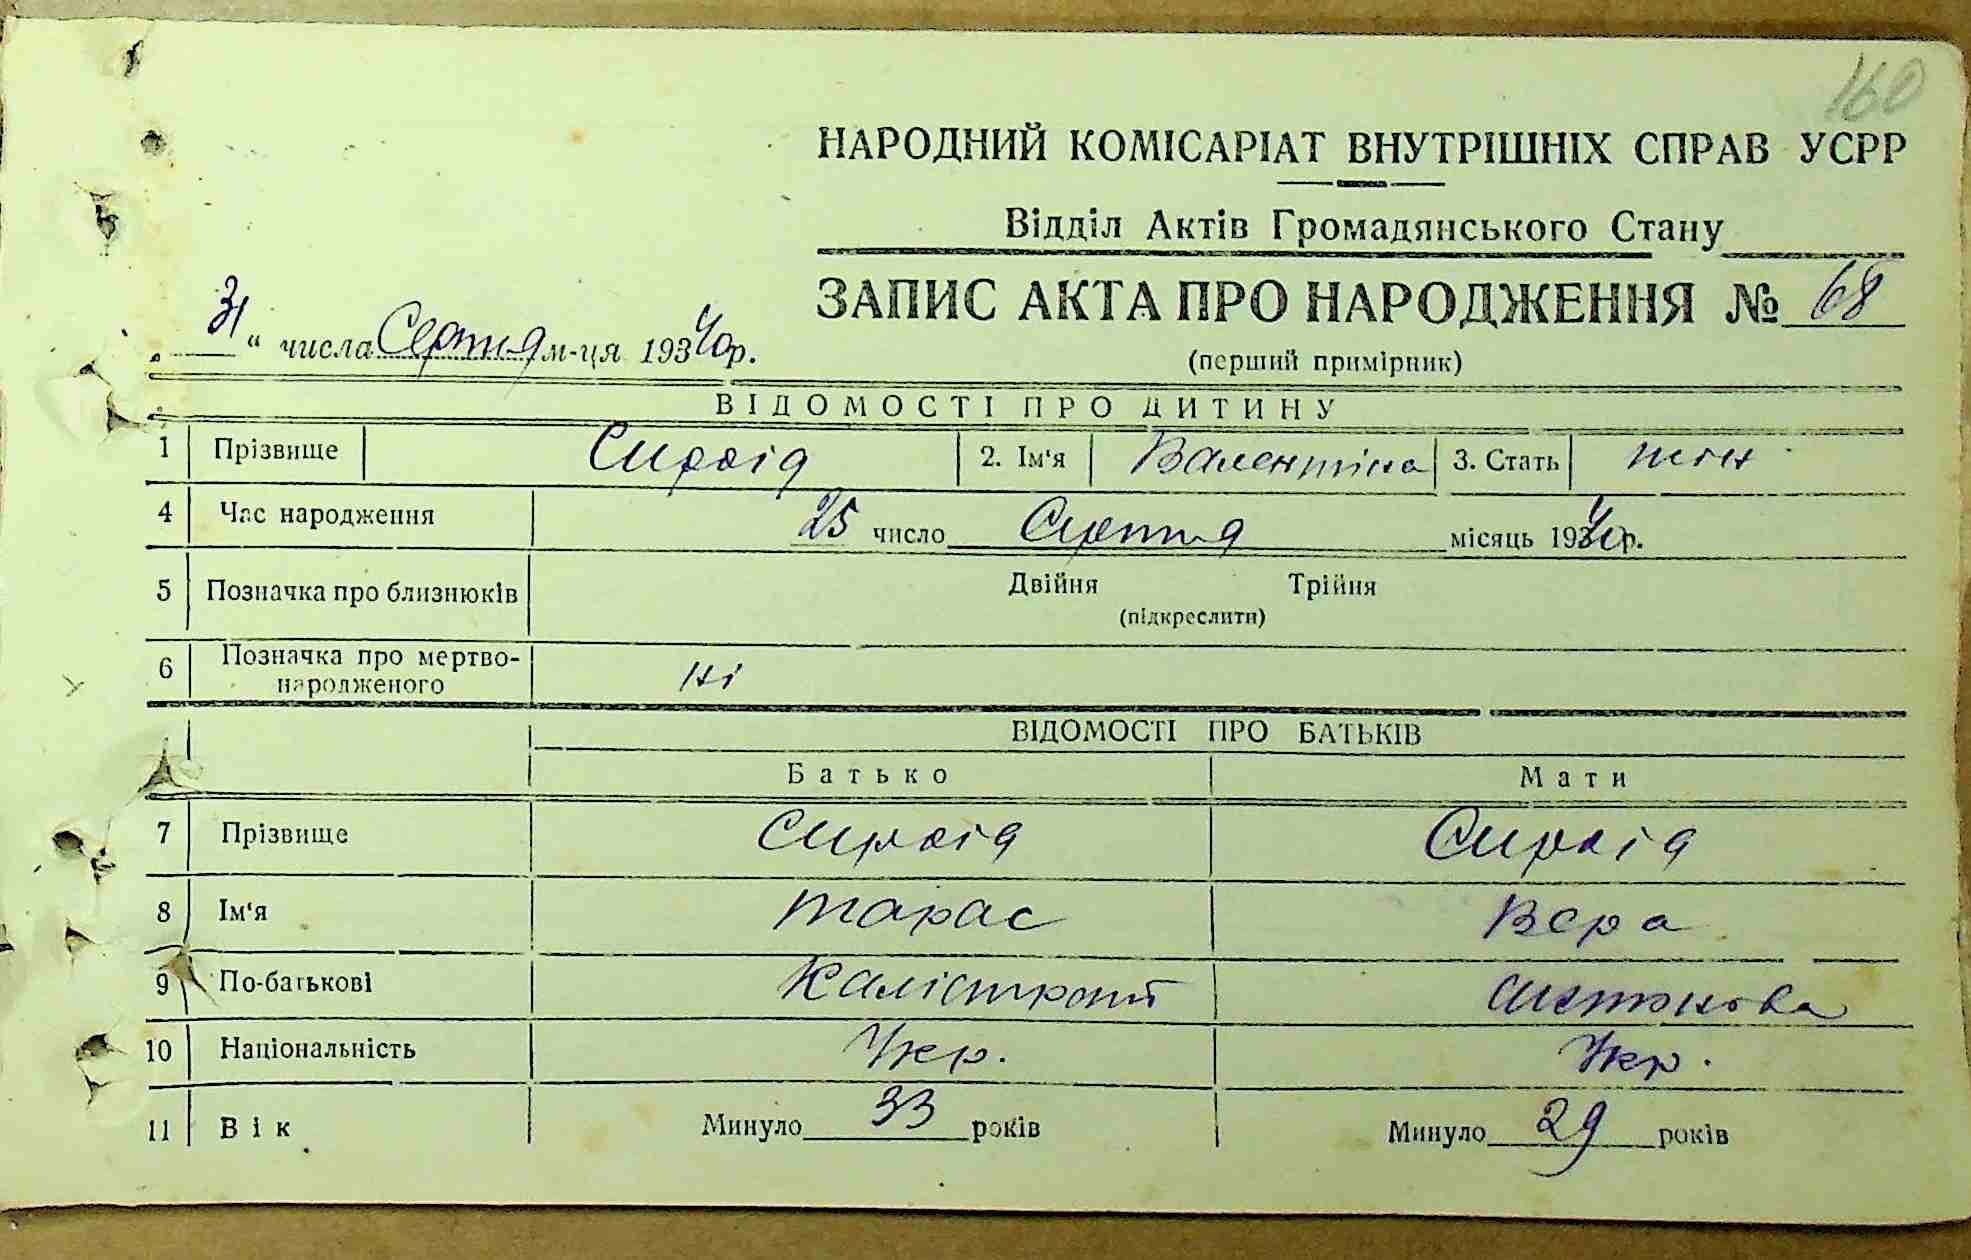 160
НАРОДНИЙ КОМІСАРІАТ ВНУТРІШНІХ СПРАВ УСРР
Відділ Актів Громадянського Стану
ЗАПИС АКТА ПРО НАРОДЖЕННЯ № 68
„31“ числа Серпня м-ця 19340р.
(перший примірник)
ВІДОМОСТІ ПРО ДИТИНУ
1 Прізвище Сироїд 2. Ім'я Валентіна 3. Стать жін
4 Час народження 25 число Серпня місяць 19340р.
5 Позначка про близнюків Двійня Трійня
(підкреслити)
6 Позначка про мертво-
народженого ні
ВІДОМОСТІ ПРО БАТЬКІВ
Батько Мати
7 Прізвище Сироїд Сироїд
8 Ім'я Тарас Вера
9 По-батькові Калістрат
10 Національність Укр. Укр.
11 Вік Минуло 33 років Минуло 29 років